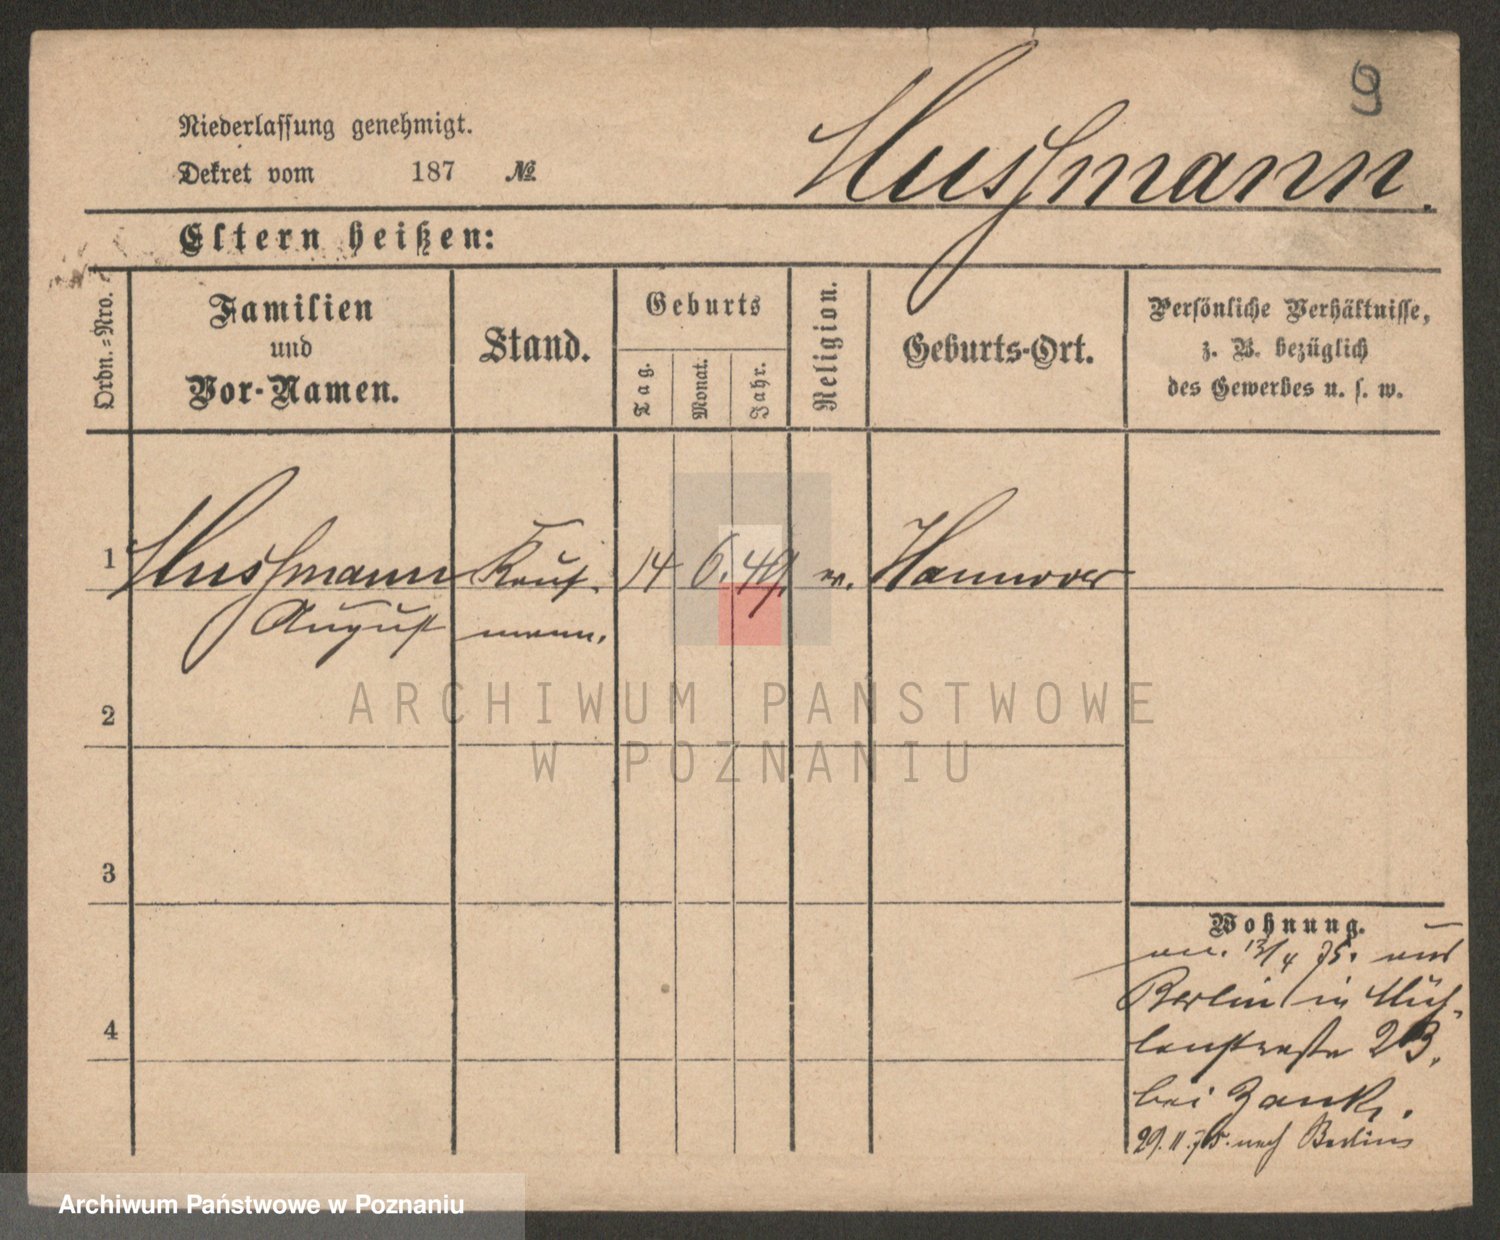 9
Niederlassung genehmigt.
Dekret vom 187 №
Hussmann.
Eltern heißen:
Ordn.=Nro.
Familien
und
Vor-Namen.
Stand.
Geburts
Tag.
Monat.
Jahr.
Religion.
Geburts-Ort.
Persönliche Verhältnisse,
z. B. bezüglich
des Gewerbes u. s. w.
1 Hussmann Kauf- 14 6. 49. ev. Hannover
August mann.
2
3
4
Wohnung.
13/4 75. aus
Berlin in Müh-
lenstraße 23,
bei Zank.
29. 11. 75. nach Berlin
ARCHIWUM PAŃSTWOWE
W POZNANIU
Archiwum Państwowe w Poznaniu